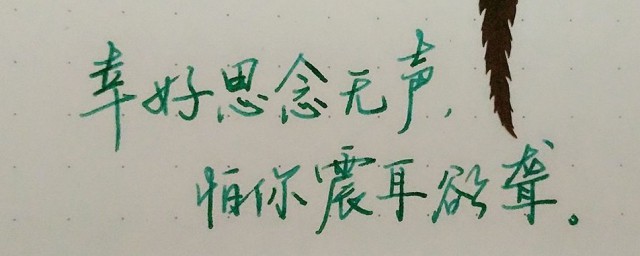 幸好思念无声,
怕你震耳欲聋。